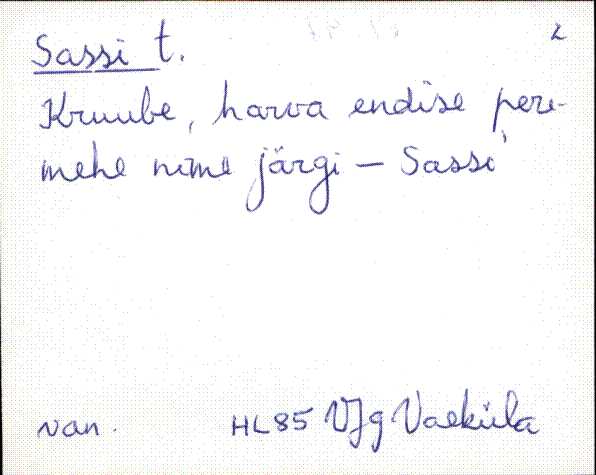 Sassi t.
2
Kruube, harva endise pere-
mehe nime järgi – Sassi
van.
HL85 VJg Vaeküla